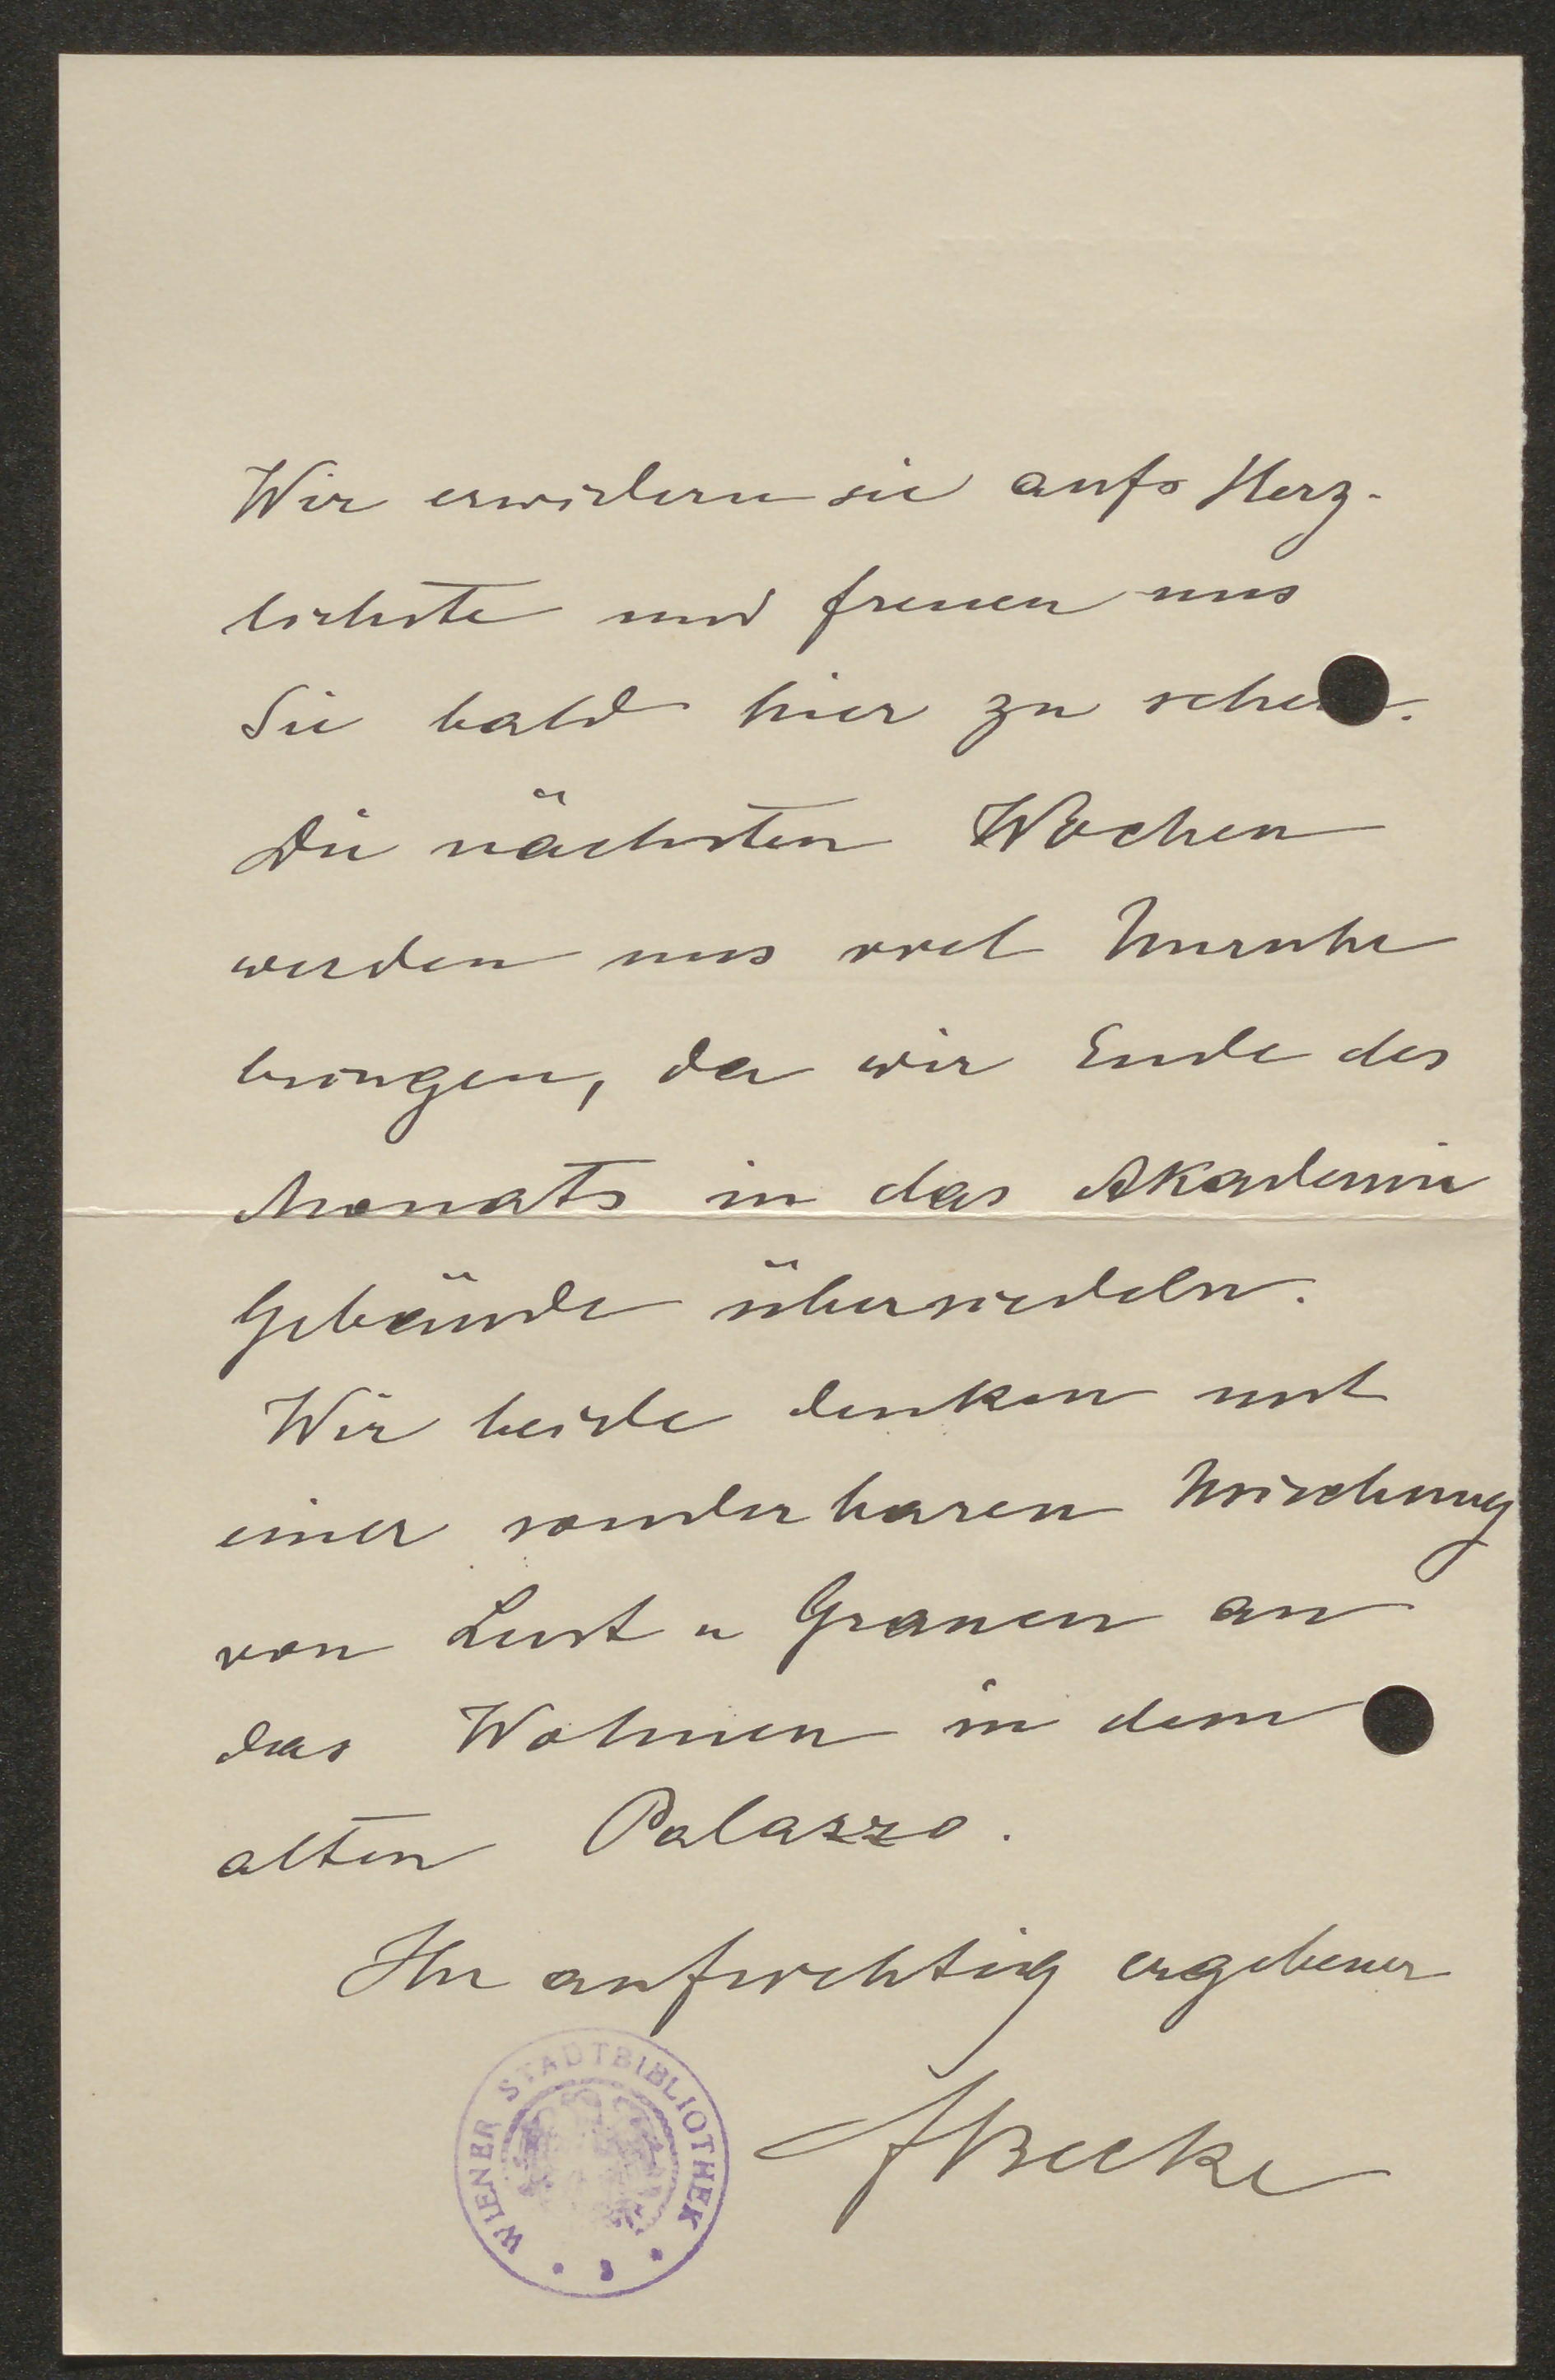 Wir erwidern sie aufs Herz-
lichste und freuen uns
Sie bald hier zu sehen.
Die nächsten Wochen
werden uns viel Unruhe
bringen, da wir Ende des
Monats in das Akademie
Gebäude übersiedeln.
Wir beide denken mit
einer sonderbaren Mischung
von Lust u Grauen an
das Wohnen in dem
alten Palazzo.
Ihr aufrichtig ergebener
FBecke
WIENER STADTBIBLIOTHEK